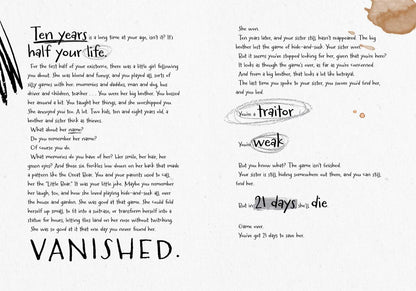 Ten years is a long time at your age, isn't it? It's
half your life.
For the first half of your existence, there was a little girl following
you about. She was blond and funny, and you played all sorts of
silly games with her: mummies and daddies, man and dog, bus
driver and children, teacher . . . You were her big brother. You bossed
her around a bit. You taught her things, and she worshipped you.
She annoyed you too. A lot. Two kids, ten and eight years old, a
brother and sister thick as thieves.
What about her name?
Do you remember her name?
Of course you do.
What memories do you have of her? Her smile, her hair, her
green eyes? And those six freckles low down on her back that made
a pattern like the Great Bear. You and your parents used to call
her the "Little Bear." It was your little joke. Maybe you remember
her laugh, too, and how she loved playing hide-and-seek all over
the house and garden. She was good at that game. She could fold
herself up small, to fit into a suitcase, or transform herself into a
statue for hours, letting flies land on her nose without twitching.
She was so good at it that one day you never found her.
VANISHED.
She won.
Ten years later, and your sister still hasn't reappeared. The big
brother lost the game of hide-and-seek. Your sister won.
But it seems you've stopped looking for her, given that you're here?
It looks as though the game's over, as far as you're concerned.
And from a big brother, that looks a lot like betrayal.
The last time you spoke to your sister, you swore you'd find her,
and you lied.
You're a traitor
You're weak
But you know what? The game isn't finished.
Your sister is still hiding somewhere out there, and you can still
find her.
But in 21 days she'll die
Game over.
You've got 21 days to save her.